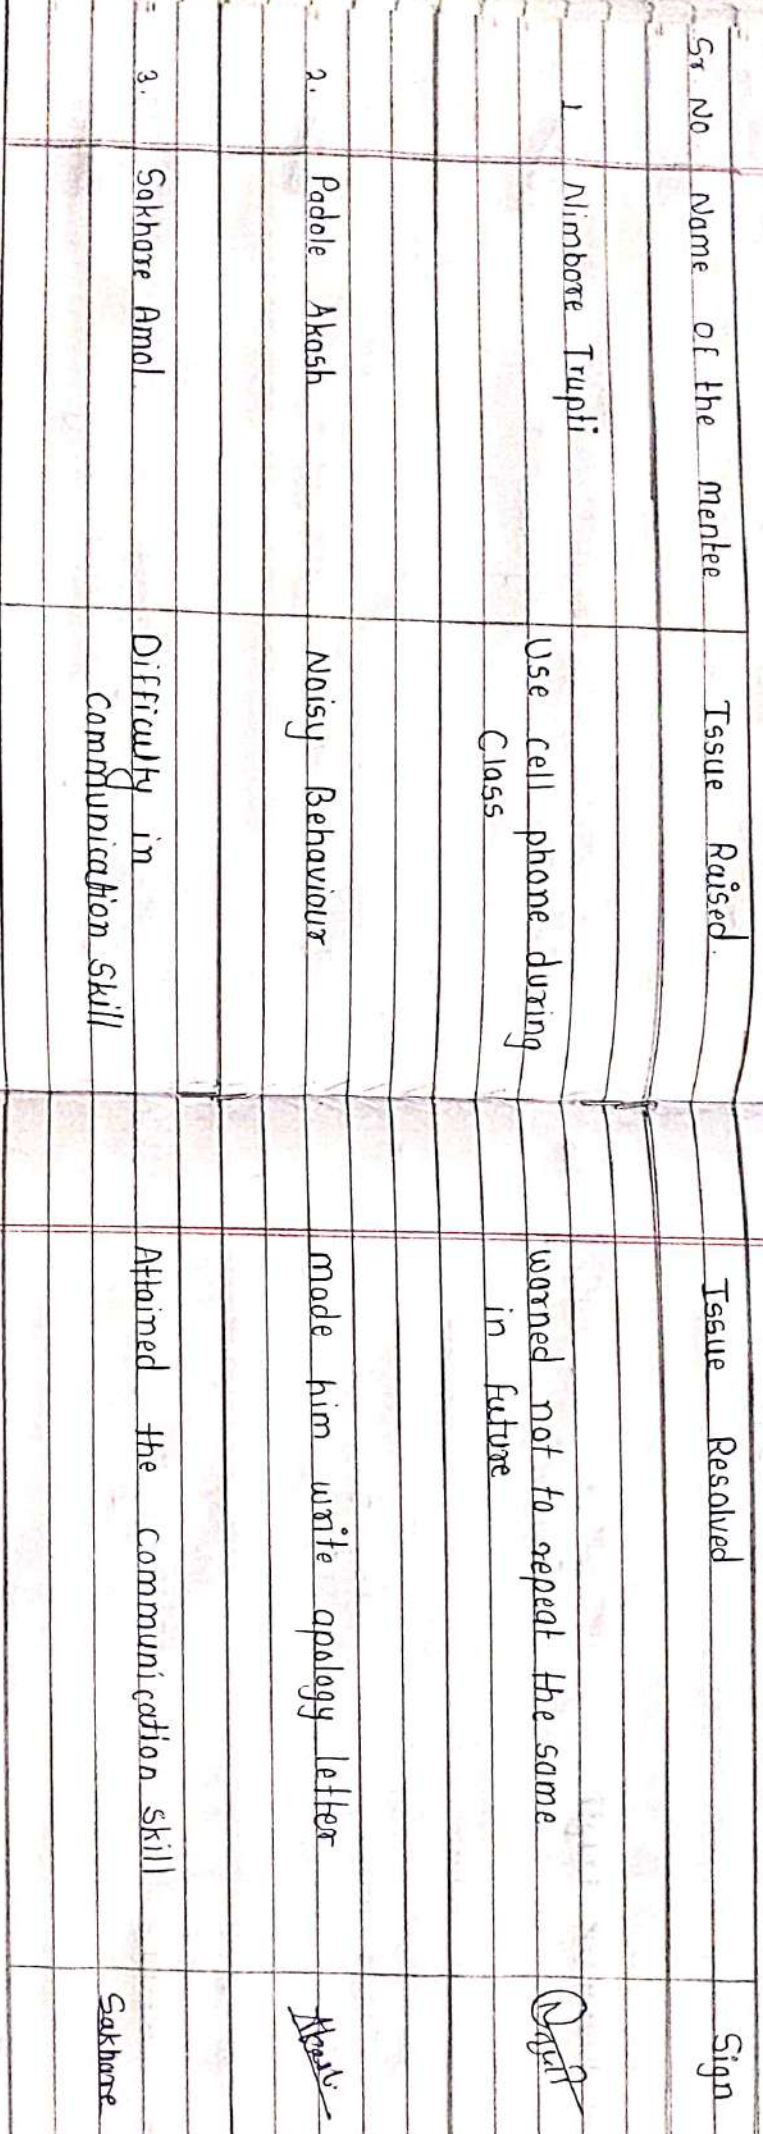 Sr. No. Name of the Mentee Issue Raised. Issue Resolved Sign
1 Nimbore Trupti Use cell phone during Class warned not to repeat the same in future
2. Padole Akash Noisy Behaviour made him write apology letter Akash
3. Sakhare Amol. Difficulty in Communication Skill Attained the communication skill Sakhare